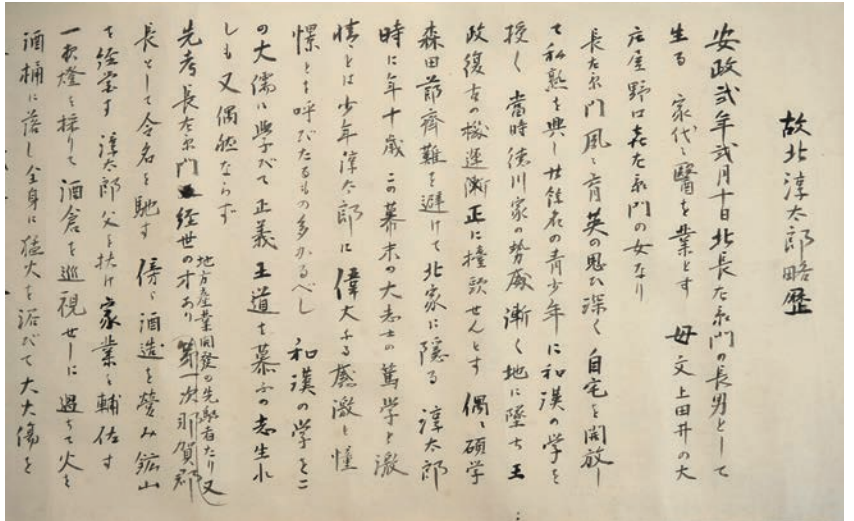 故北淳太郎略歴
安政弐年弐月十日北長左衛門の長男として
生る 家代々醫を業とす 母文上田井の大
庄屋野口㐂左衛門の女なり
長左衛門夙に育英の思ひ深く自宅を開放し
て私塾を興し廿餘名の青少年に和漢の学を
授く 當時徳川家の勢威漸く地に墜ち王
政復古の機運漸正に擡頭せんとす 偶々碩学
森田節齊難を避けて北家に隠る 淳太郎
時に年十歳 この幕末の大志士の篤学と激
情とは少年淳太郎に偉大なる感激と憧
憬とを呼びたるもの多かるべし 和漢の学をこ
の大儒に学びて正義王道を慕ふの志生れ
しも又偶然ならず
先考長左衛門経世の才あり 地方産業開發の先駆者たり又 第一次那賀郡
長として令名を馳す 傍々酒造を營み鉱山
を経営す 淳太郎父を扶け家業を輔佐す
一夜燈を採りて酒倉を巡視せしに過ちて火を
酒桶に落し全身に猛火を浴びて大火傷を